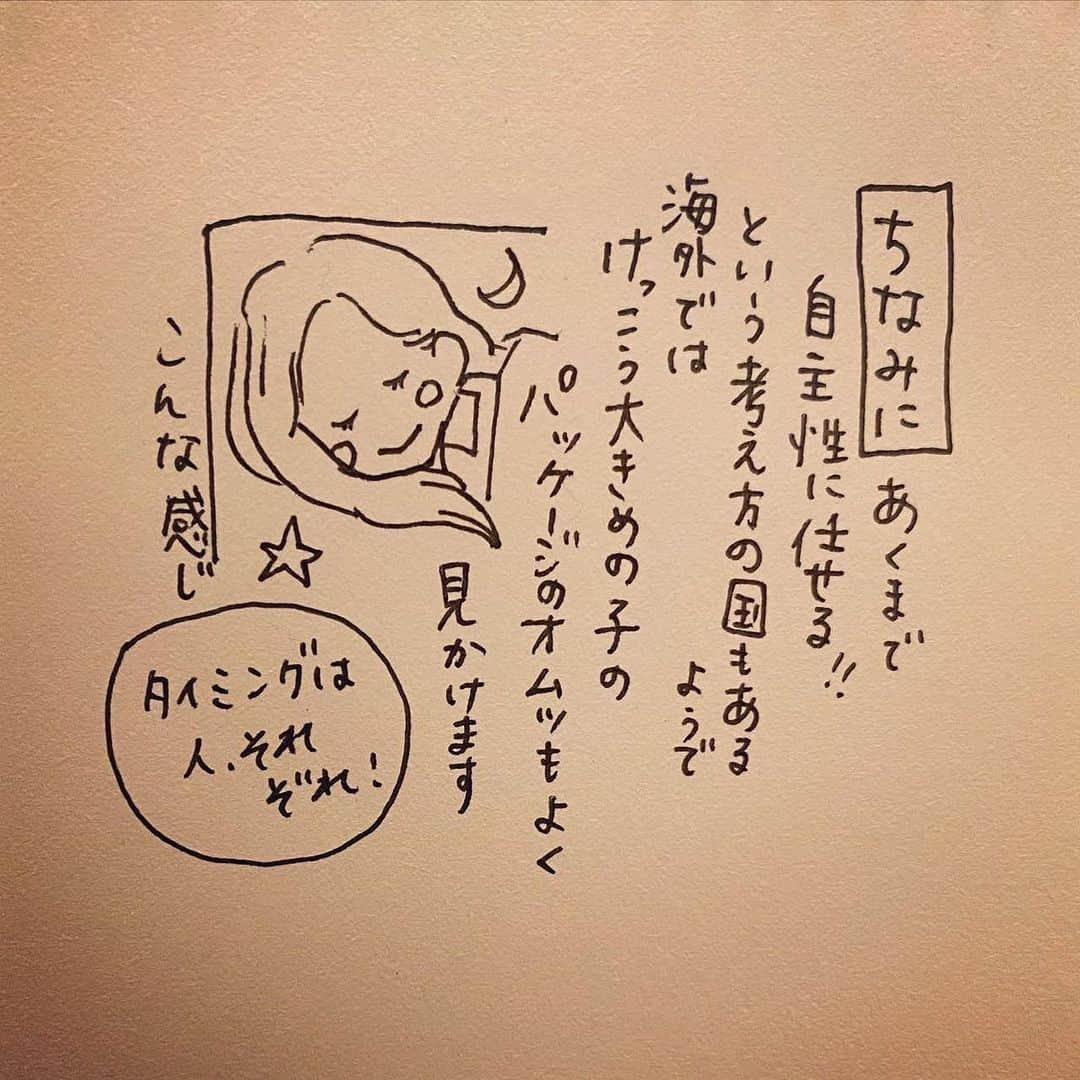 ちなみに あくまで
自主性に任せる!!
という考え方の国もある
ようで
海外では
けっこう大きめの子の
パッケージのオムツもよく
見かけます
こんな感じ
タイミングは
人、それ
ぞれ!